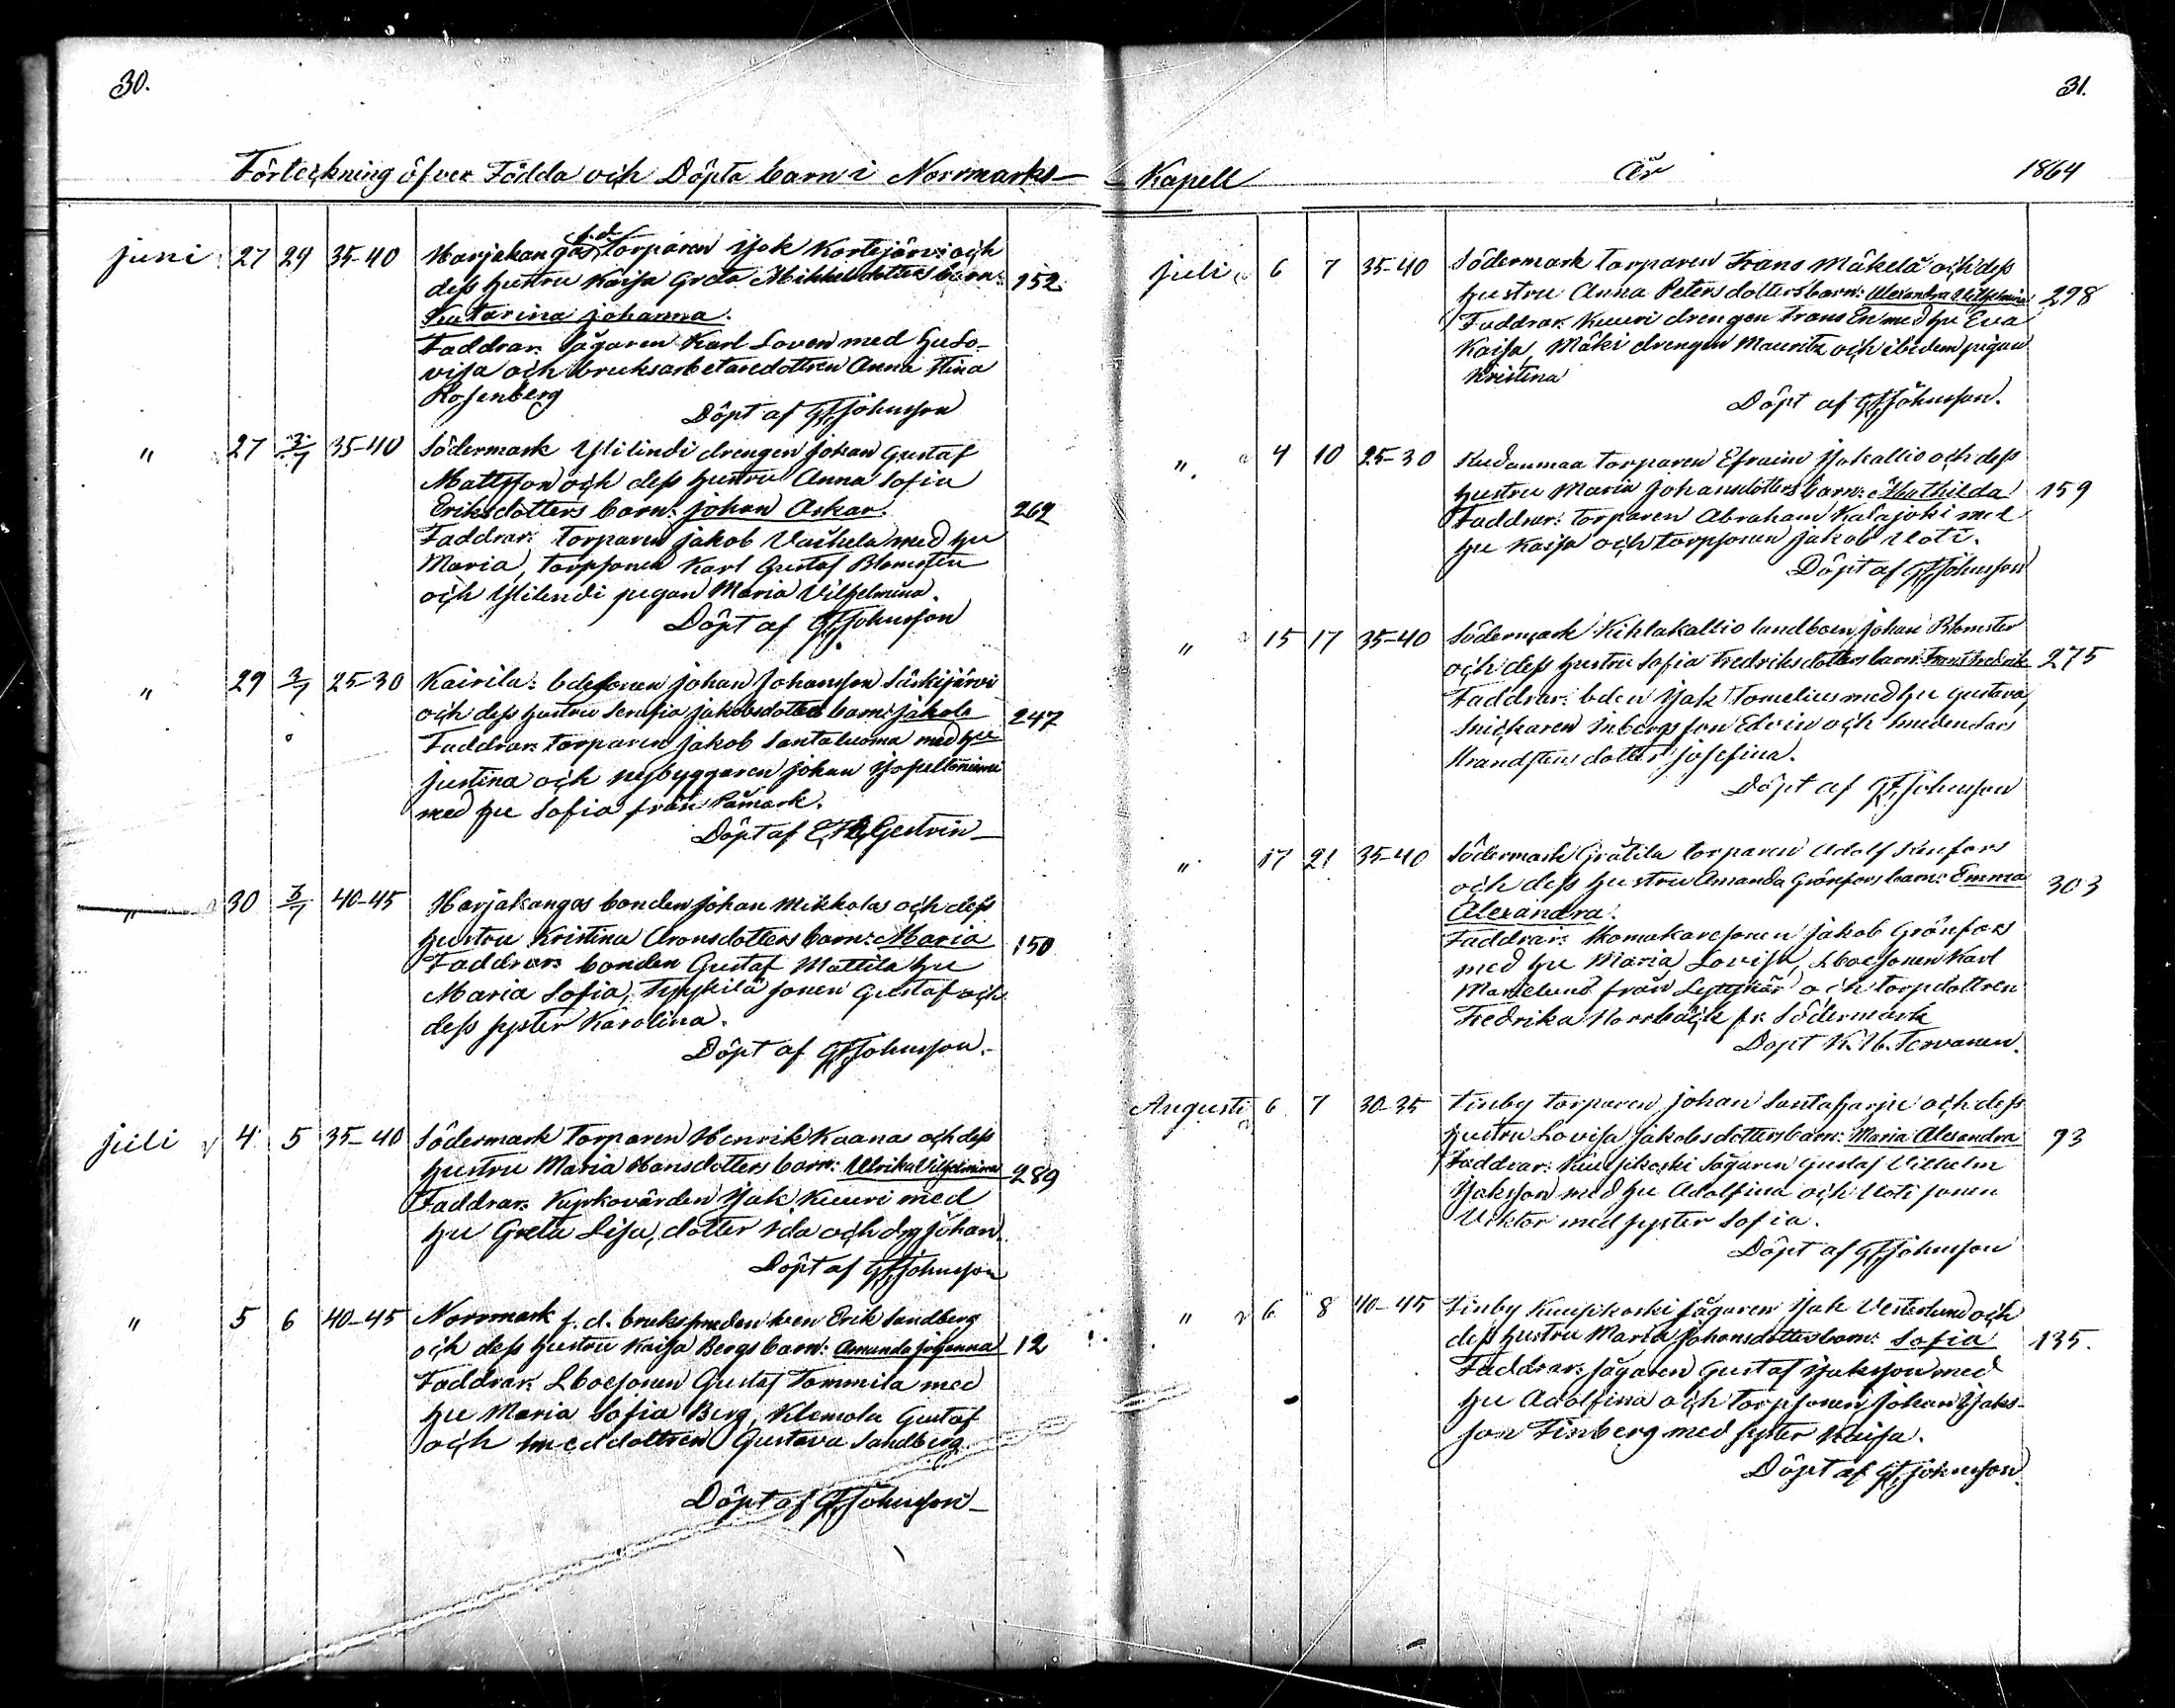 30.
Förteckning öfver Födda och Döpta barn i Norrmarks-
juni 27 29 35-40 Harjakangas f.d. torparen Isak Kortejärvi och
dess hustru Kaisa Greta Mikkelsdotters barn: 152
Katarina Johanna.
Faddrar: Sågaren Karl Loven med hu Lo-
visa och bruksarbetaredottren Anna Stina
Rosenberg
Döpt af GFJohnsson
" 27 3/7 35-40 Södermark Ylilindi drengen Johan Gustaf
Mattsson och dess hustru Anna Sofia
Eriksdotters barn: Johan Oskar. 262
Faddrar: torparen Jakob Vaihela med hu
Maria, torpsonen Karl Gustaf Blomsten
och Ylilindi pigan Maria Vilhelmina.
Döpt af GFJohnsson
" 29 3/7 25-30 Kairila: bdesonen Johan Johansson Särkijärvi
och dess hustru Serafia Jakobsdotters barn: Jakob 247
Faddrar: torparen Jakob Santaluoma med hu
Justina och nybyggaren Johan
med hu Sofia från Påmark.
Döpt af Gestrin-
" 30 3/7 40-45 Harjakangas bonden Johan Mikkolas och dess
hustru Kristina Aronsdotters barn: Maria 150
Faddrar: bonden Gustaf Mattila hu
Maria Sofia, sonen Gustaf och
dess syster Karolina.
Döpt af GFJohnsson.
juli 4 5 35-40 Södermark torparen Henrik Kaanas och dess
hustru Maria Hansdotters barn: Ulrika Vilhelmina 289
Faddrar: Kyrkovärden Isak Kuuri med
hu Greta Lisa, dotter Ida och drg Johan.
Döpt af GFJohnsson
" 5 6 40-45 Norrmark f.d. brukssmeden Sven Erik Sandberg
och dess hustru Kaisa Bergs barn: Amanda Johanna 12
Faddrar: Lboesonen Gustaf Tommila med
hu Maria Sofia Berg, Klemola Gustaf
och smeddottren Gustava Sandberg.
Döpt af GFJohnsson-
31.
-Kapell år 1864
juli 6 7 35-40 Södermark torparen Frans Mäkelä och dess
hustru Anna Petersdotters barn: Alexandra Vilhelmina 298
Faddrar: Kuuri drengen Frans En med hu Eva
Kaisa, Mäki drengen Mauritz och ibidem pigan
Kristina
Döpt af GFJohnsson.
" 4 10 25-30 Kudanmaa torparen Efraim Isokallio och dess
hustru Maria Johansdotters barn: Mathilda 159
Faddrar: torparen Abraham Kalajoki med
hu Kaisa och torpsonen Jakob Uoti.
Döpt af GFJohnsson
" 15 17 35-40 Södermark Kihlakallio landboen Johan Blomster
och dess hustru Sofia Fredriksdotters barn: Frans Fredrik 275
Faddrar: bden Isak Tomelius med hu Gustava,
Snickaren Inbergs son Edvin och smeden Lars
Strandstens dotter Josefina.
Döpt af GFJohnsson
" 17 21 35-40 Södermark Grätila torparen Adolf Renfors
och dess hustru Amanda Grönfors barn: Emma 303
Alexandra.
Faddrar: Skomakaresonen Jakob Grönfors
med hu Maria Lovisa, Lboesonen Karl
Marelund från Lyttskär och torpdottren
Fredrika Norrbäck fr. Södermark
Döpt K. H. Tervanen.
Augusti 6 7 30-35 Finby torparen Johan Santaharju och dess
hustru Lovisa Jakobsdotters barn: Maria Alexandra 93
Faddrar: Kuusikoski Sågaren Gustaf Vilhelm
Isaksson med hu Adolfina och Uoti sonen
Viktor med syster Sofia.
Döpt af GFJohnsson
" 6 8 40-45 Finby Kuusikoski sågaren Isak Vesterlund och
dess hustru Maria Johansdotters barn: Sofia 135.
Faddrar: sågaren Gustaf Isaksson med
hu Adolfina och torpsonen Johan Isaks-
son Finberg med syster Kaisa.
Döpt af GFJohnsson.